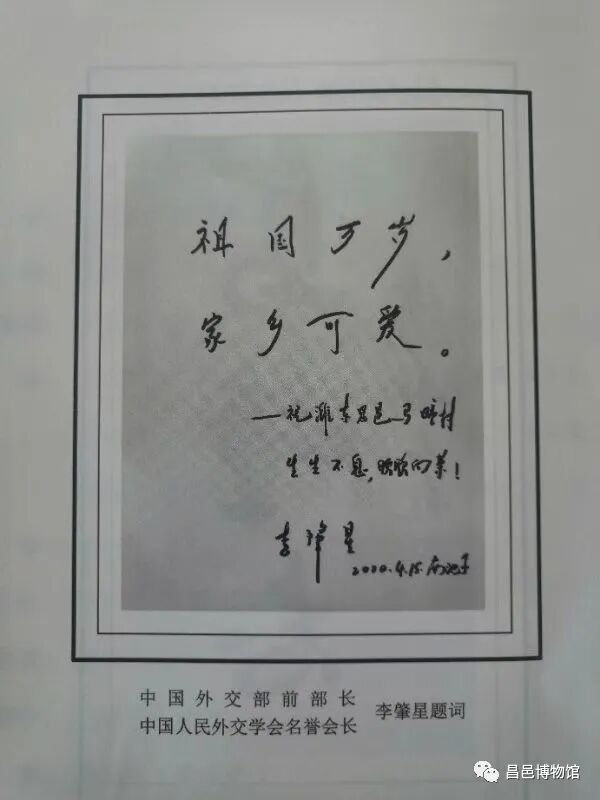 祖国万岁，
家乡可爱。
—祝潍昌邑马疃村
生生不息，欣欣向荣！
李肇星
2020.4.15.南池子
中国外交部前部长
中国人民外交学会名誉会长 李肇星题词
昌邑博物馆